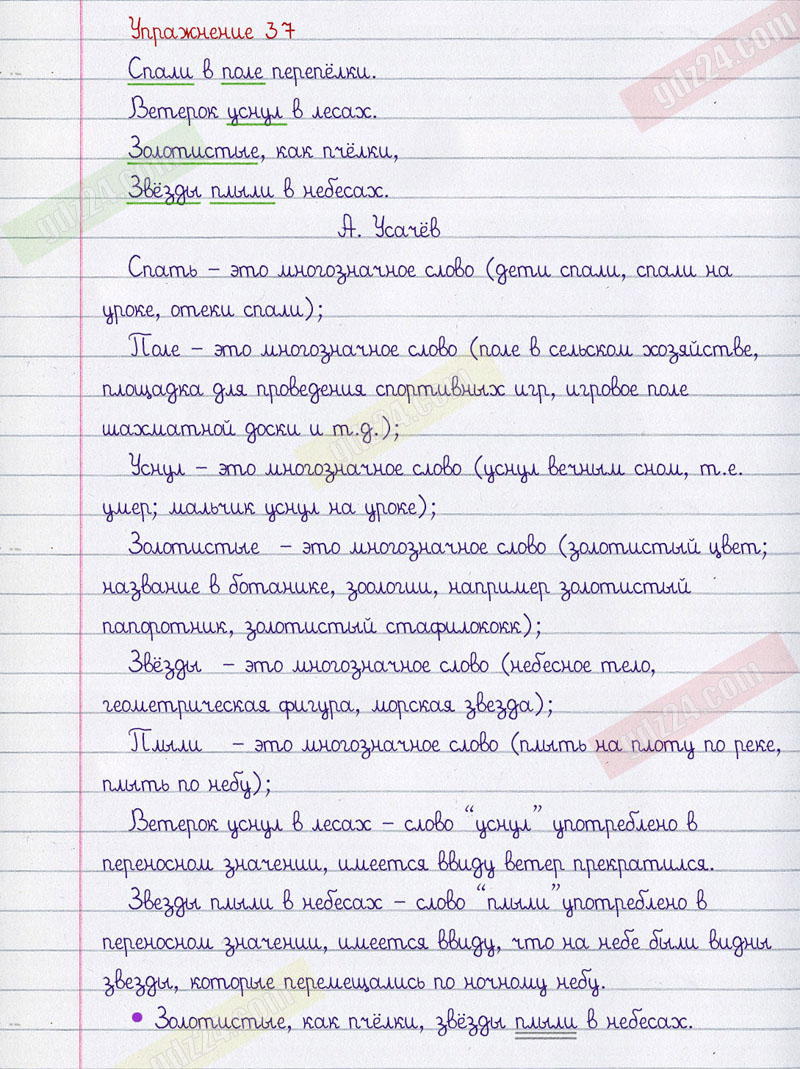 Упражнение 37
Спали в поле перепёлки.
Ветерок уснул в лесах.
Золотистые, как пчёлки,
Звёзды плыли в небесах.
А. Усачёв
Спать – это многозначное слово (дети спали, спали на
уроке, отеки спали);
Поле – это многозначное слово (поле в сельском хозяйстве,
площадка для проведения спортивных игр, игровое поле
шахматной доски и т.д.);
Уснул – это многозначное слово (уснул вечным сном, т.е.
умер; мальчик уснул на уроке);
Золотистые – это многозначное слово (золотистый цвет;
название в ботанике, зоологии, например золотистый
папоротник, золотистый стафилококк);
Звёзды – это многозначное слово (небесное тело,
геометрическая фигура, морская звезда);
Плыли – это многозначное слово (плыть на плоту по реке,
плыть по небу);
Ветерок уснул в лесах – слово “уснул” употреблено в
переносном значении, имеется ввиду ветер прекратился.
Звезды плыли в небесах – слово “плыли” употреблено в
переносном значении, имеется ввиду, что на небе были видны
звезды, которые перемещались по ночному небу.
• Золотистые, как пчёлки, звёзды плыли в небесах.
gdz24.com
gdz24.com
gdz24.com
gdz24.com
gdz24.com